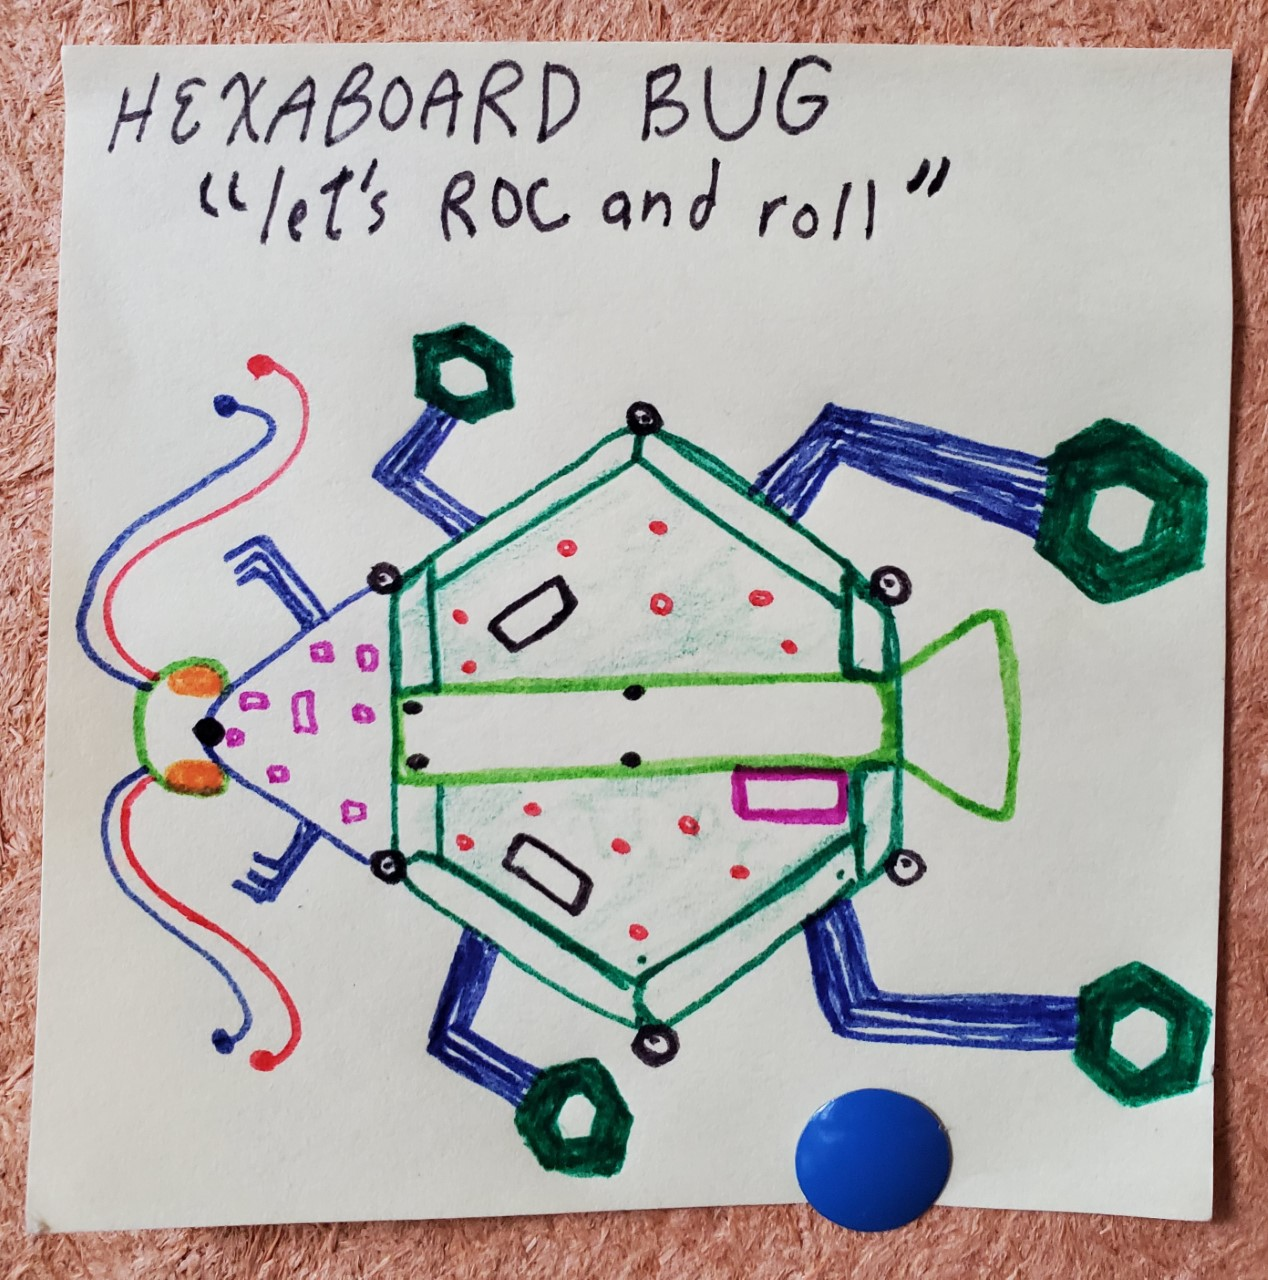 HEXABOARD BUG
“let's ROC and roll”